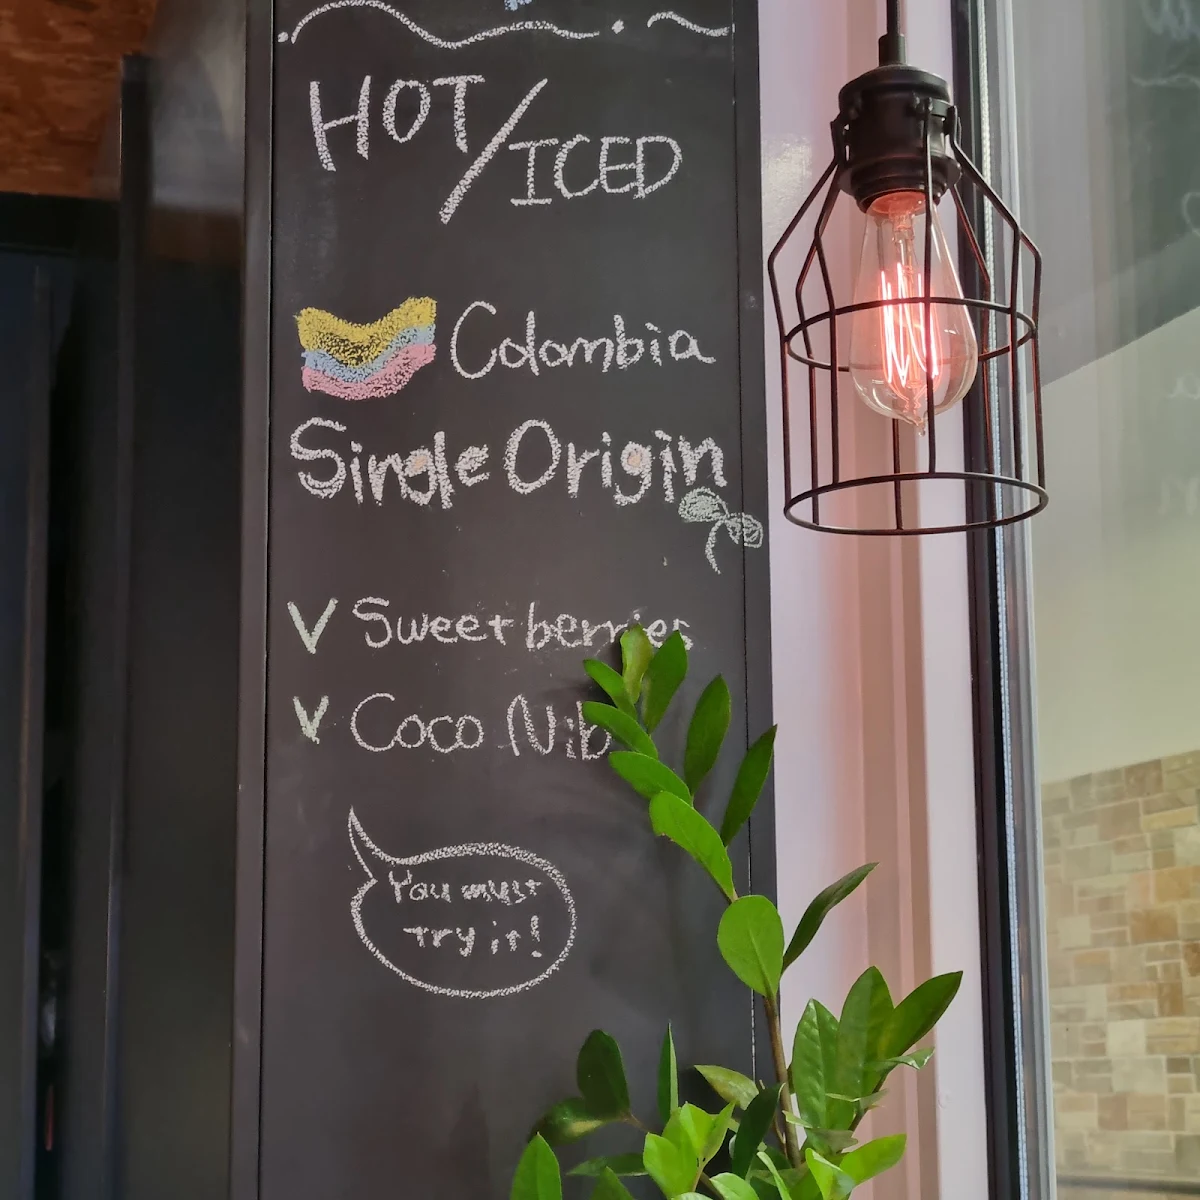 HOT/ICED
Colombia
Single Origin
V Sweet berries
V Coco Nib
You must
try it!